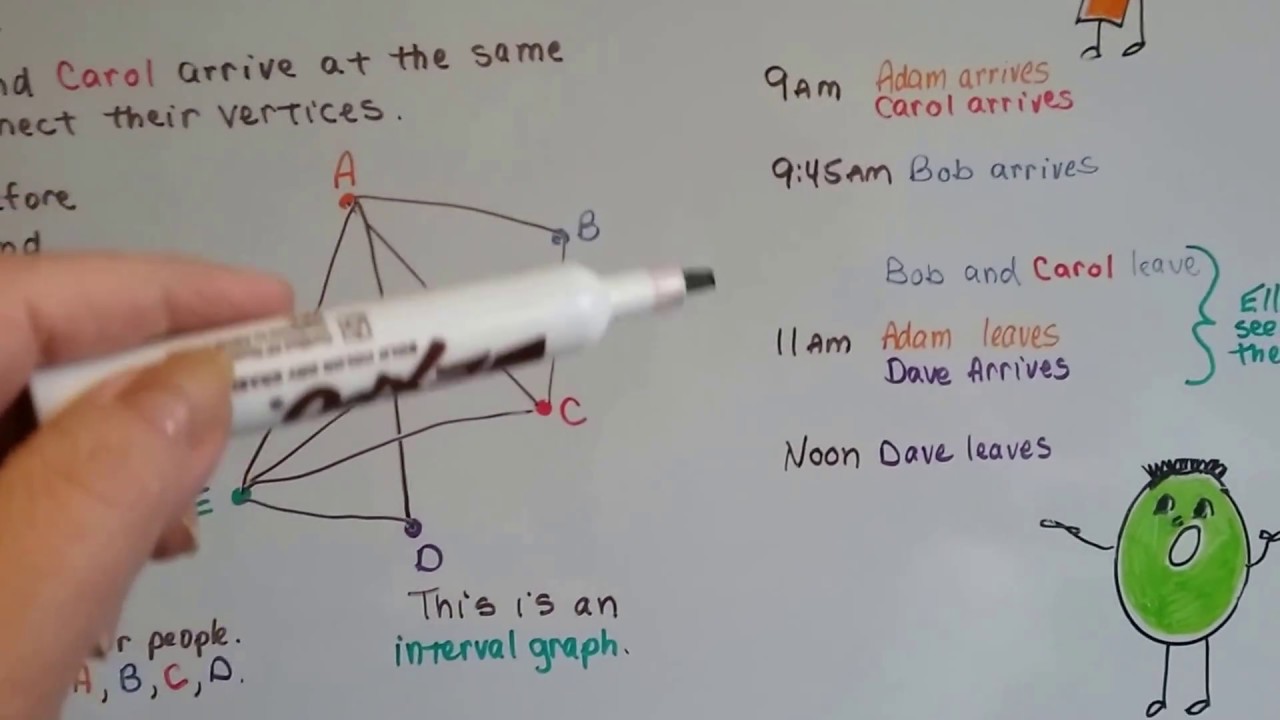 nd Carol arrive at the same
nect their vertices.
fore
nd
A
B
C
E
D
This is an
interval graph.
r people.
A, B, C, D.
9AM Adam arrives
Carol arrives
9:45AM Bob arrives
Bob and Carol leave
11AM Adam leaves
Dave Arrives
Noon Dave leaves
Ell
see
the